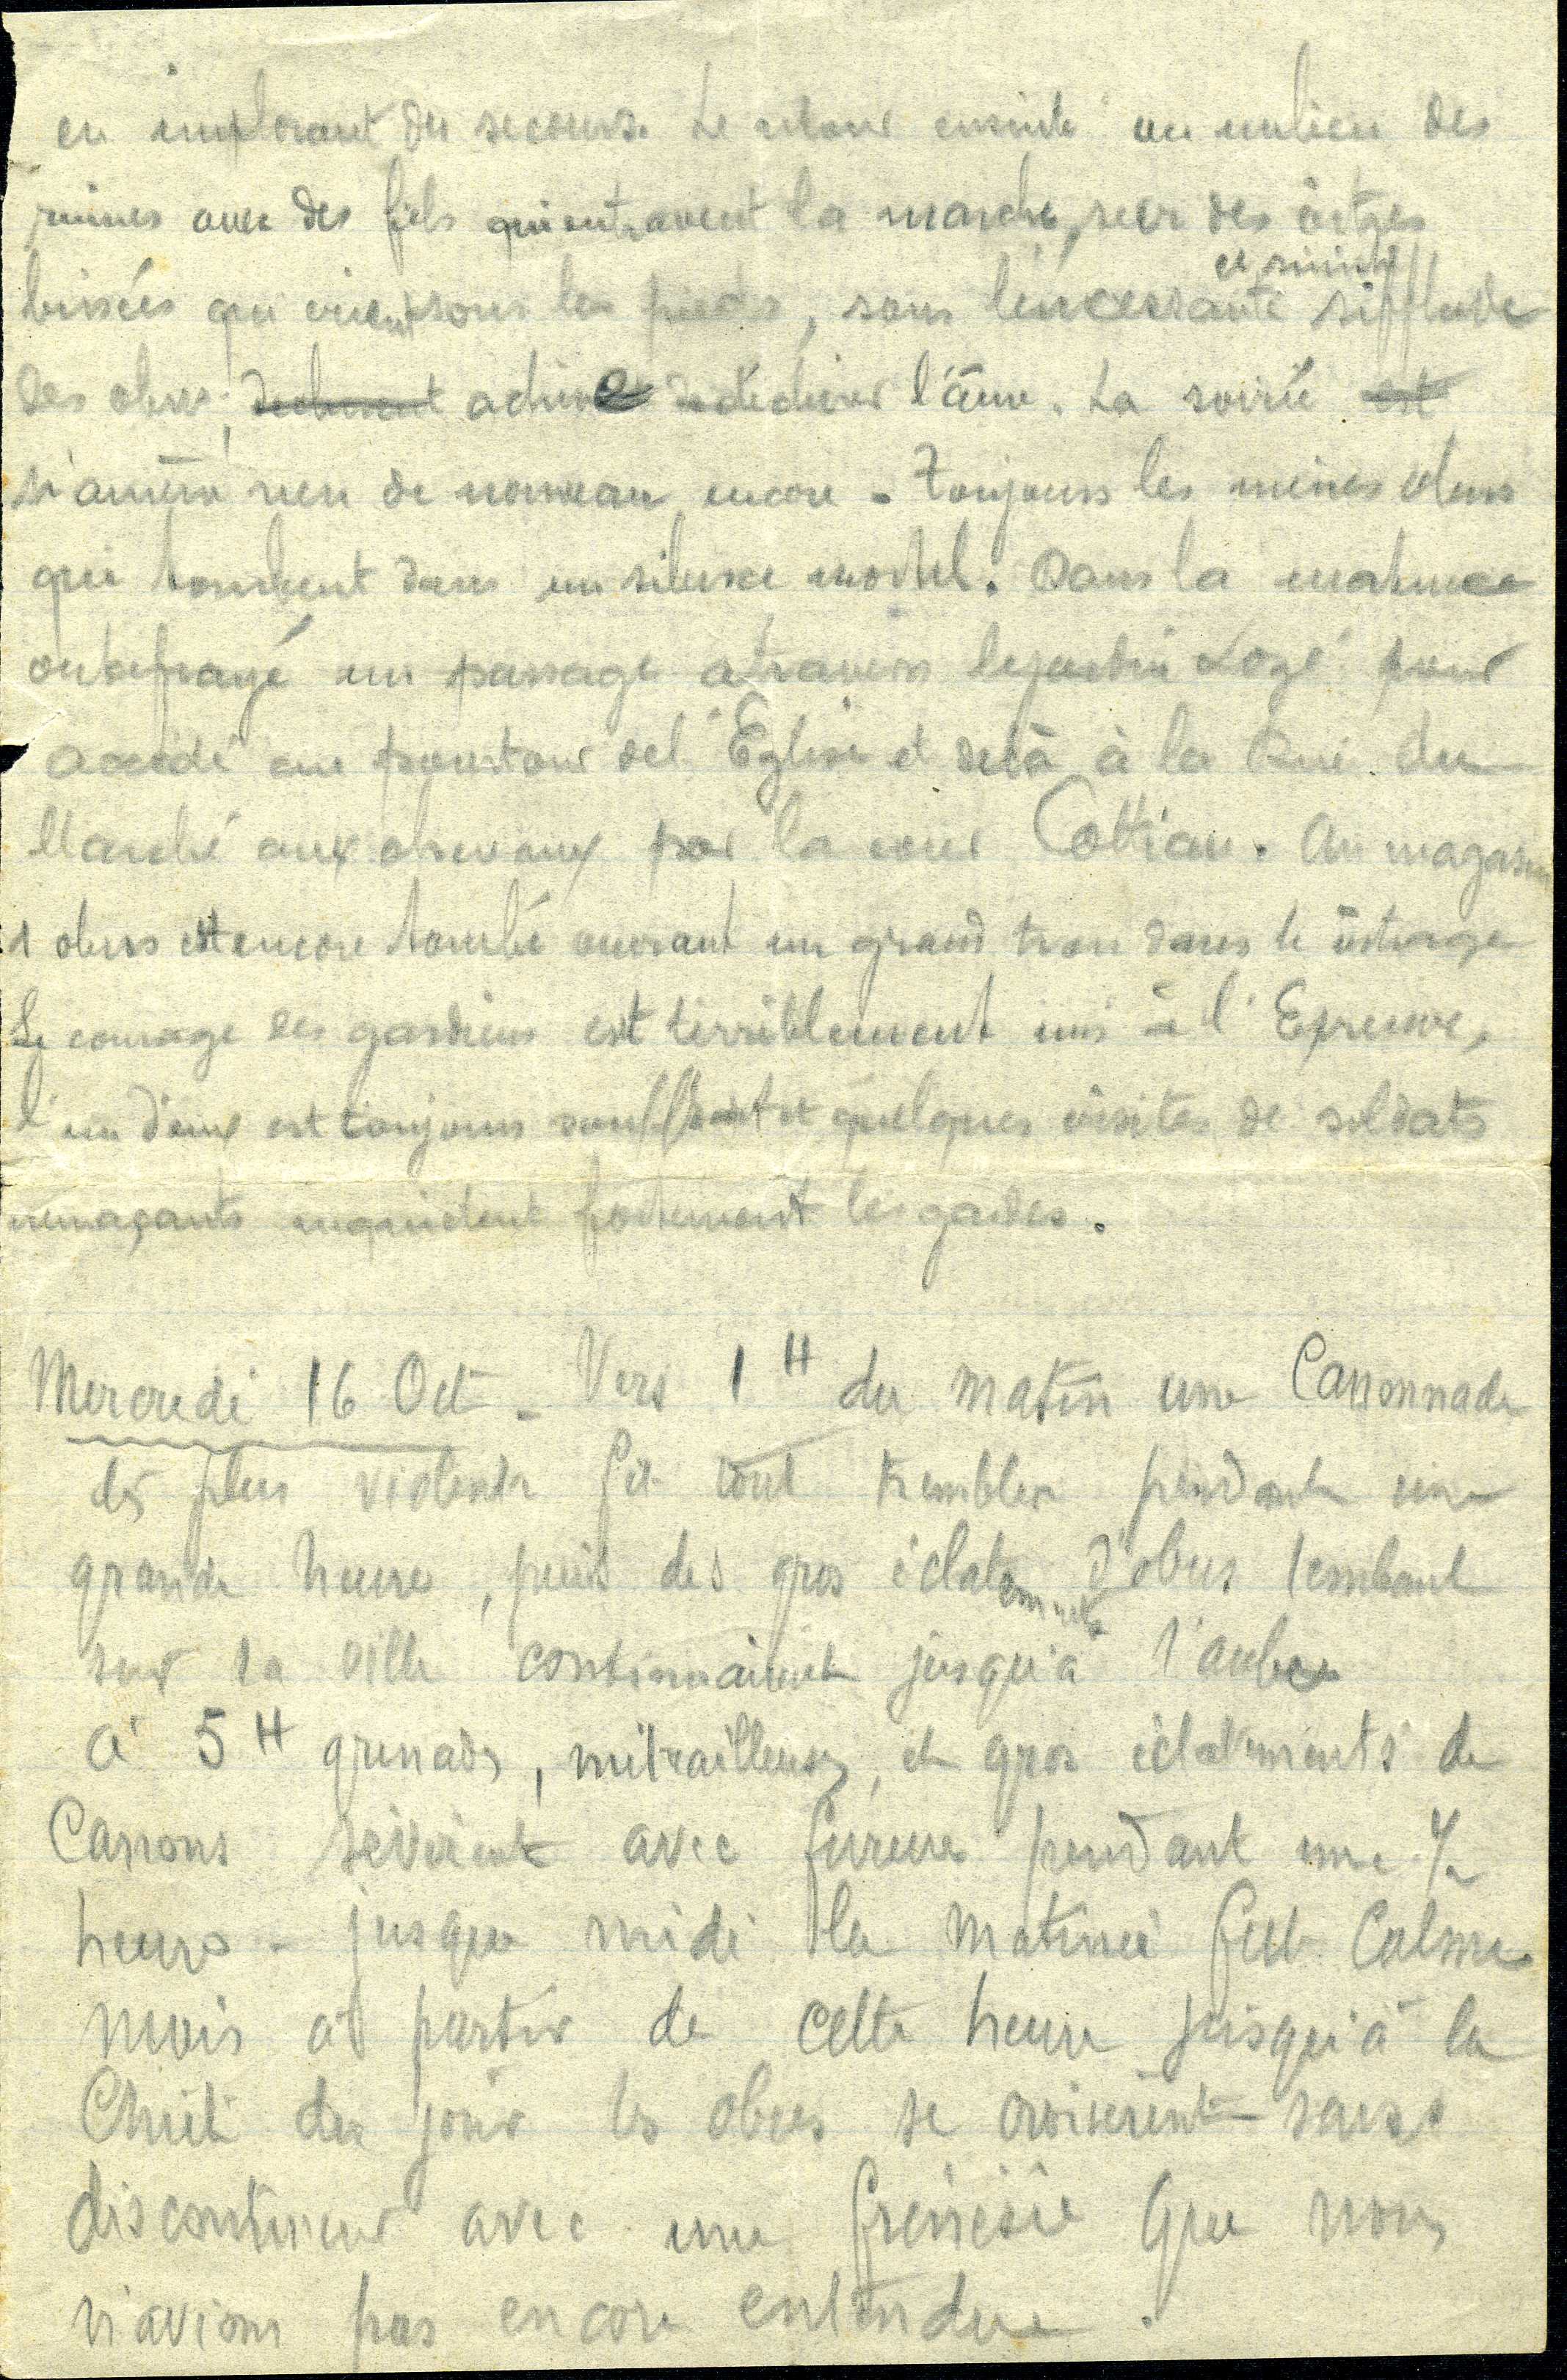 en implorant du secours. Le retour ensuite au milieu des
ruines avec des fils qui entravent la marche, sur des vitres
brisées qui crient sous les pieds, sous l'incessante et sinistre sifflade
des obus, achève de déchirer l'âme. La soirée est
n'amène rien de nouveau encore - Toujours les mêmes obus
qui tombent dans un silence mortel. Dans la matinee
on be frayé un passage atravers le jardin Lozé pour
accédé au pourtour del'Eglise et delà à la Rue du
Marché aux chevaux par la cour Cottiau. Au magasin
1 obus est encore tombé ouvrant un grand trou dans le vitrage
Le courage des gardiens est terriblement mis à l'Epreuve,
l'un d'eux est toujours souffrant et quelques visites de soldats
menaçants inquietent fortement les gardes.
Mercredi 16 Oct - Vers 1 H du matin une Cannonade
des plus violente fit tout trembler pendant une
grande heure, puis des gros éclatements d'obus tombant
sur la ville continuaient jusqu'à l'aube
à 5 H grenads, mitrailleuses, et gros éclatements de
Canons sévirent avec fureur pendant une 1/2
heure - jusque midi la matinée fut Calme
mais à partir de cette heure jusqu'à la
Chute du jour les obus se croisèrent sans
discontinuer avec une frénésie que nous
n'avions pas encore entendue.